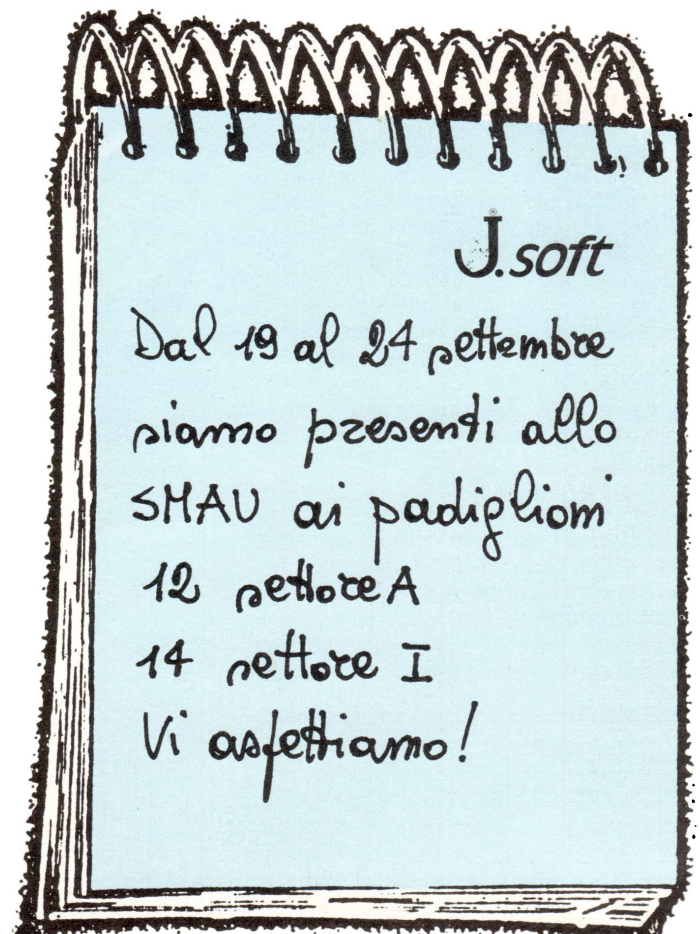 J.soft®
Dal 19 al 24 settembre
siamo presenti allo
SMAU ai padiglioni
12 settore A
14 settore I
Vi aspettiamo!